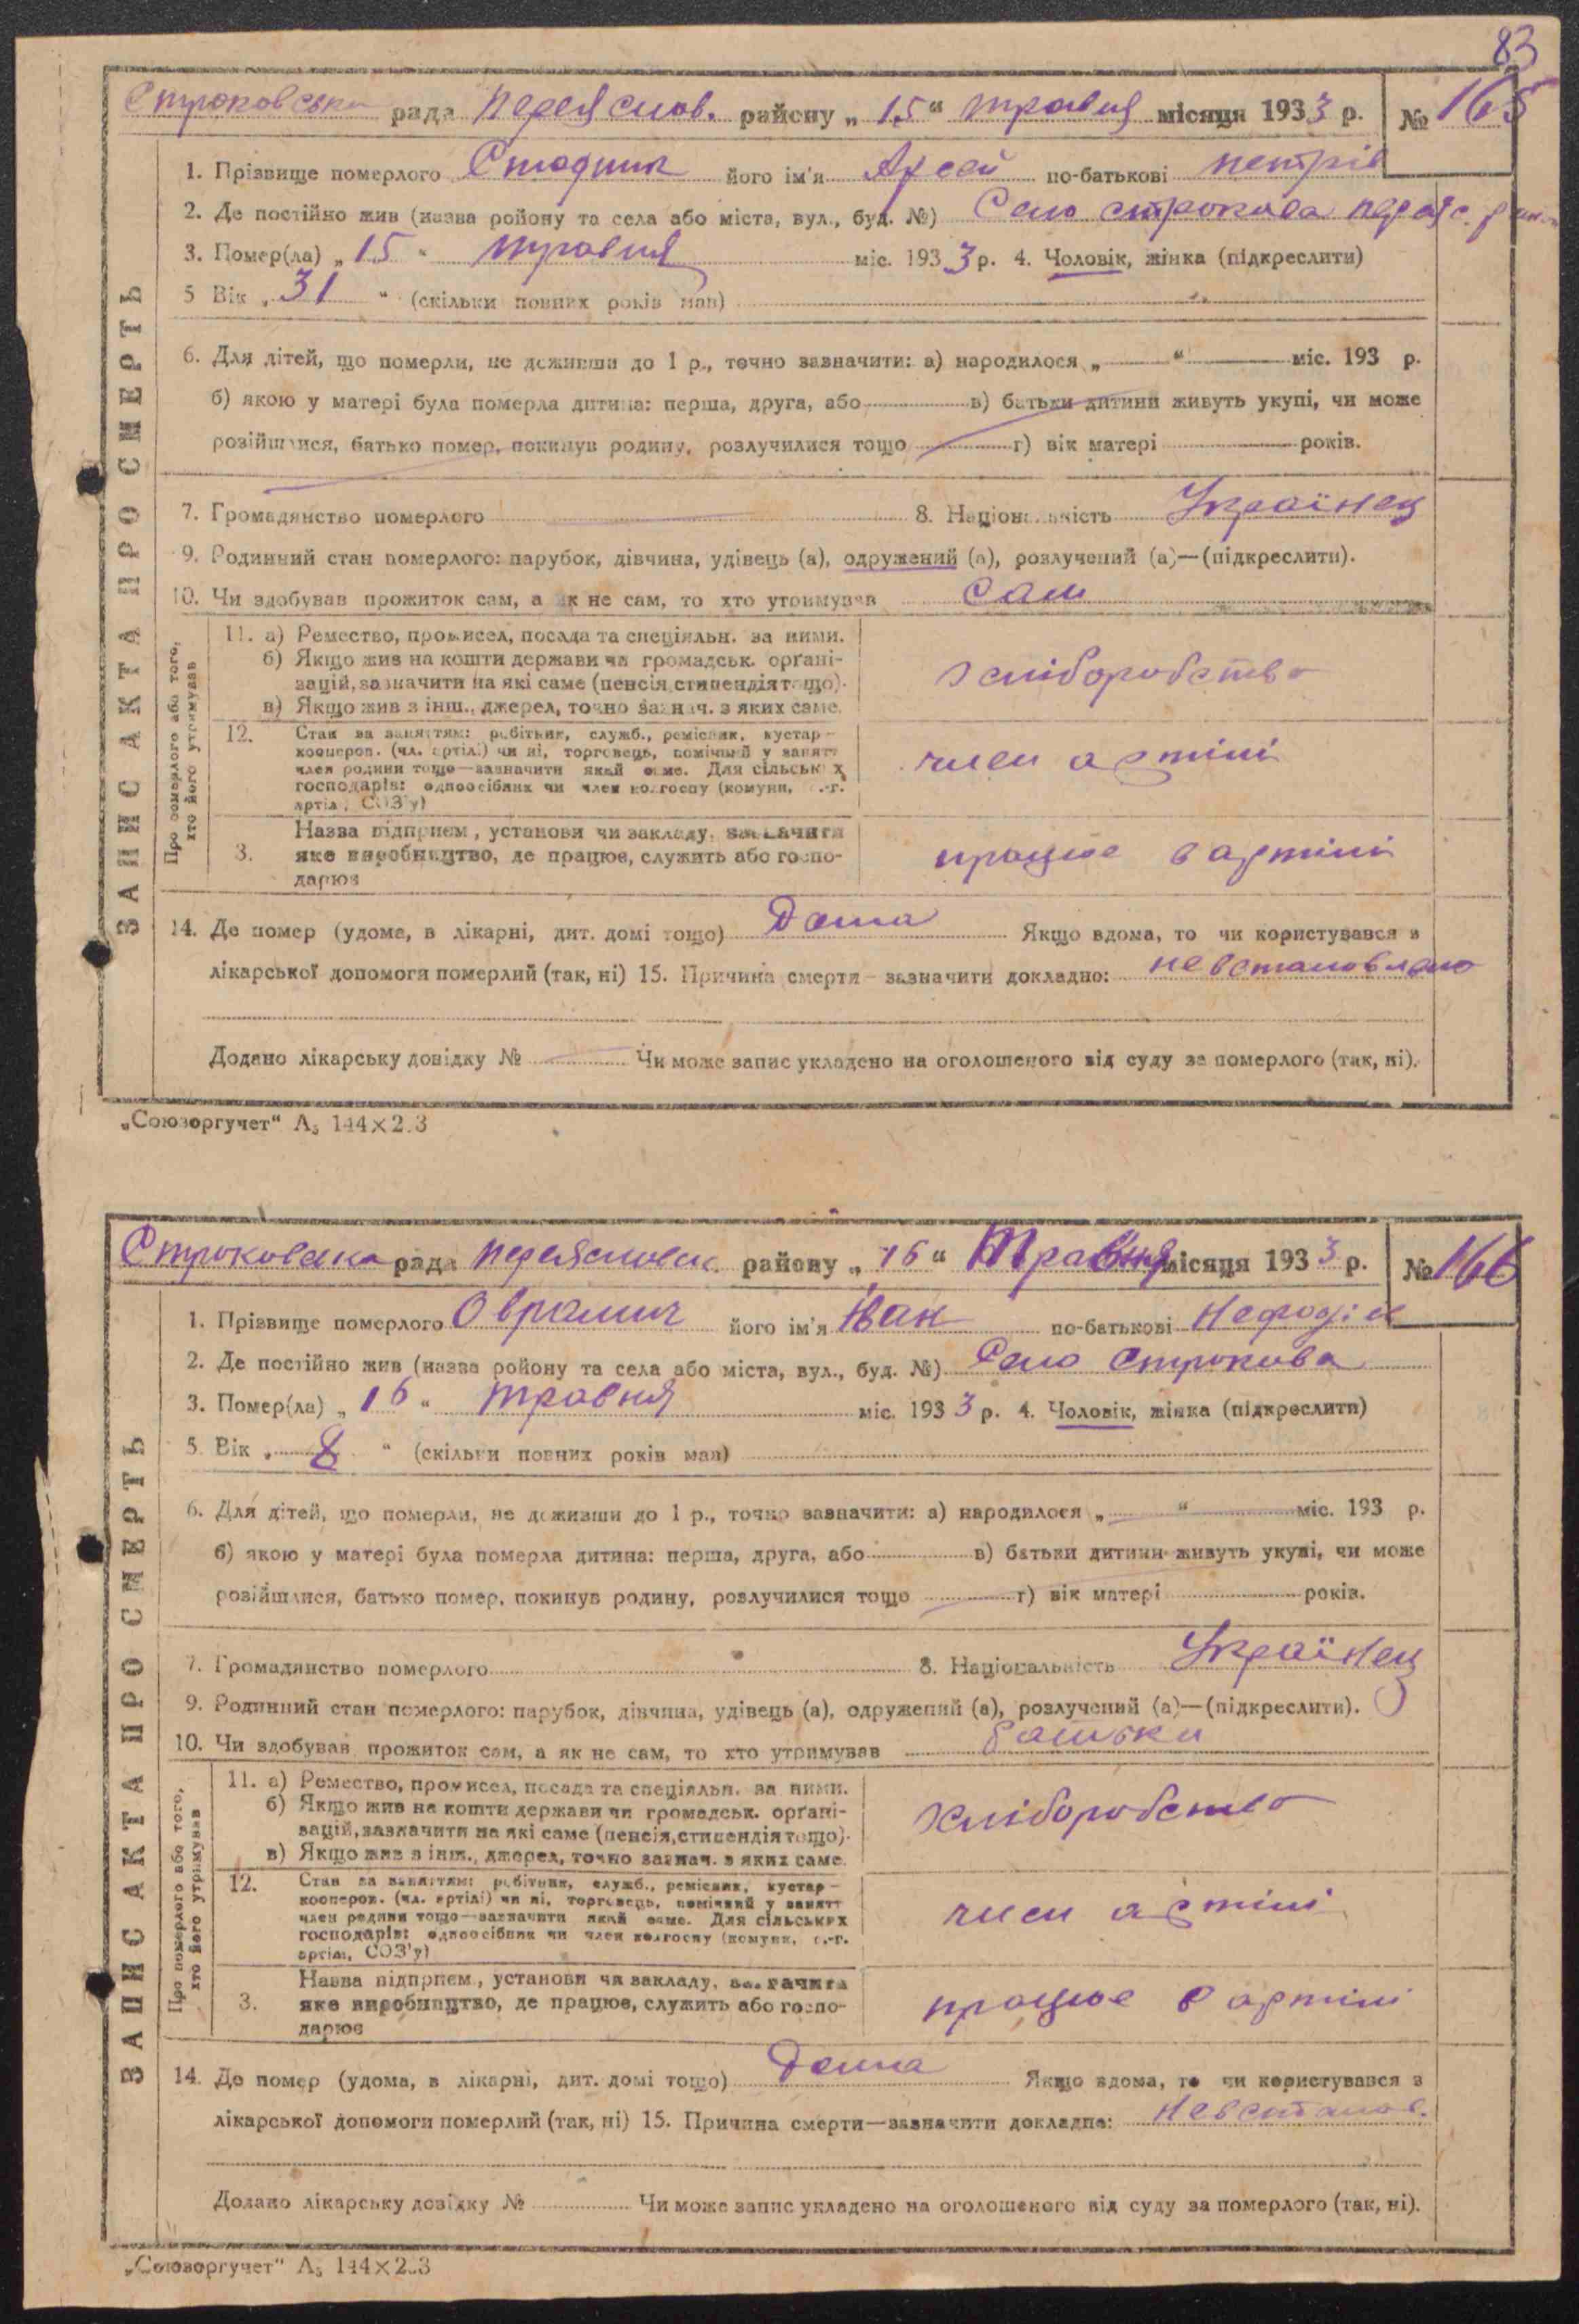 83
Строковська рада Переяслов. району „ 15 “ травня місяця 1933 р. № 165
1. Прізвище померлого Стюдник його ім'я Арсей по-батькові петрів
2. Де постійно жив (назва ройону та села або міста, вул., буд. №) Село строкова
3. Помер(ла) „ 15 “ травня міс. 1933 р. 4. Чоловік, жінка (підкреслити)
5 Вік „ 31 “ (скільки повних років мав)
6. Для дітей, що померли, не доживши до 1 р., точно зазначити: а) народилося „ “ міс. 193 р.
б) якою у матері була померла дитина: перша, друга, або в) батьки дитини живуть укупі, чи може
розійшлися, батько помер, покинув родину, розлучилися тощо г) вік матері років.
7. Громадянство померлого 8. Національність Українец
9. Родинний стан померлого: парубок, дівчина, удівець (а), одружений (а), розлучений (а)—(підкреслити).
10. Чи здобував прожиток сам, а як не сам, то хто утримував Сам
ЗАПИС АКТА ПРО СМЕРТЬ
Про померлого або того, хто його утримував
11. а) Ремество, промисел, посада та спеціяльн. за ними.
б) Якщо жив на кошти держави чи громадськ. орґані-
зацій, зазначити на які саме (пенсія, стипендія тощо).
в) Якщо жив з інш., джерел, точно зазнач. з яких саме.
хліборобство
12. Стан за заняттям: робітник, служб., ремісник, кустар-
кооперов. (чл. артілі) чи ні, торговець, помічний у занятт
член родини тощо—зазначити який саме. Для сільських
господарів: одноосібник чи член колгоспу (комуни, с.-г.
артіл, СОЗ'у)
член артілі
3. Назва підприєм., установи чи закладу, зазначити
яке виробництво, де працює, служить або госпо-
дарює
працює в артілі
14. Де помер (удома, в лікарні, дит. домі тощо) Дома Якщо вдома, то чи користувався з
лікарської допомоги померлий (так, ні) 15. Причина смерти—зазначити докладно: невстановлено
Додано лікарську довідку № Чи може запис укладено на оголошеного від суду за померлого (так, ні).
„Союзоргучет“ А5 144×2.3
Строковска рада Переясловск. району „ 16 “ Травня місяця 1933 р. № 166
1. Прізвище померлого Оврамич його ім'я Іван по-батькові
2. Де постійно жив (назва ройону та села або міста, вул., буд. №) Село Строкова
3. Помер(ла) „ 16 “ травня міс. 1933 р. 4. Чоловік, жінка (підкреслити)
5. Вік „ 8 “ (скільки повних років мав)
6. Для дітей, що померли, не доживши до 1 р., точно зазначити: а) народилося „ “ міс. 193 р.
б) якою у матері була померла дитина: перша, друга, або в) батьки дитини живуть укупі, чи може
розійшлися, батько помер, покинув родину, розлучилися тощо г) вік матері років.
7. Громадянство померлого 8. Національність Українец
9. Родинний стан померлого: парубок, дівчина, удівець (а), одружений (а), розлучений (а)—(підкреслити).
10. Чи здобував прожиток сам, а як не сам, то хто утримував батьки
ЗАПИС АКТА ПРО СМЕРТЬ
Про померлого або того, хто його утримував
11. а) Ремество, промисел, посада та спеціяльн. за ними.
б) Якщо жив на кошти держави чи громадськ. орґані-
зацій, зазначити на які саме (пенсія, стипендія тощо).
в) Якщо жив з інш., джерел, точно зазнач. з яких саме.
хліборобство
12. Стан за заняттям: робітник, служб., ремісник, кустар-
кооперов. (чл. артілі) чи ні, торговець, помічний у занятт
член родини тощо—зазначити який саме. Для сільських
господарів: одноосібник чи член колгоспу (комуни, с.-г.
артіл, СОЗ'у)
член артілі
3. Назва підприєм., установи чи закладу, зазначити
яке виробництво, де працює, служить або госпо-
дарює
працює в артілі
14. Де помер (удома, в лікарні, дит. домі тощо) Дома Якщо вдома, то чи користувався з
лікарської допомоги померлий (так, ні) 15. Причина смерти—зазначити докладно: невстанов.
Додано лікарську довідку № Чи може запис укладено на оголошеного від суду за померлого (так, ні).
„Союзоргучет“ А5 144×2.3